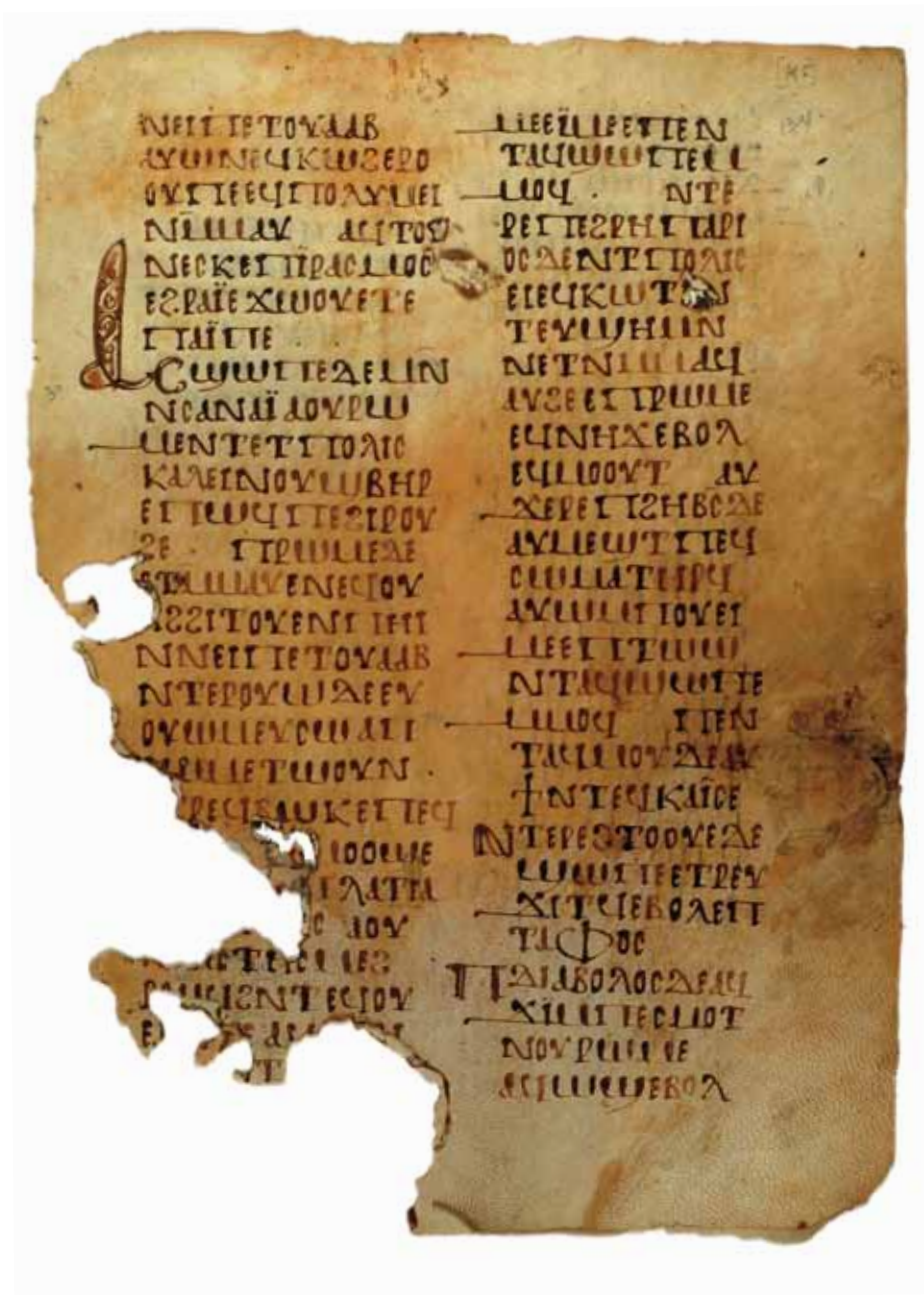 ⲛⲉⲡⲡⲉⲧⲟⲩⲁⲁⲃ
ⲁⲩⲱⲛⲉϥⲕⲱϩⲉⲣⲟ
ⲟⲩⲡⲉⲉϥⲡⲟⲗⲩⲙⲉⲓ
ⲛⲙⲙⲁⲩ ⲁϥⲧⲟⲩ
ⲛⲉⲥⲕⲉⲡⲓⲣⲁⲥⲙⲟⲥ
ⲉϩⲣⲁⲓ̈ⲉϫⲱⲟⲩⲉⲧⲉ
ⲡⲁⲓ̈ⲡⲉ
ⲁⲥϣⲱⲡⲉⲇⲉⲙⲛ
ⲛⲥⲁⲛⲁⲓ̈ⲁⲟⲩⲣⲱ
ⲙⲉⲛⲧⲉⲧⲡⲟⲗⲓⲥ
ⲕⲁⲗⲉⲓⲛⲟⲩϣⲃⲏⲣ
ⲉⲡⲱϥⲡⲉϩⲓⲣⲟⲩ
ϩⲉ ⲡⲣⲱⲙⲉⲇⲉ
ⲉⲧⲙⲙⲁⲩⲉⲛⲉϥⲟⲩ
ⲁϩϩⲓⲧⲟⲩⲉⲛⲡⲏⲓ
ⲛⲛⲉⲡⲡⲉⲧⲟⲩⲁⲁⲃ
ⲛⲧⲉⲣⲟⲩⲱⲇⲉⲉⲩ
ⲟⲩⲱⲙⲉⲩⲥⲱⲁⲡ
ⲣⲱⲙⲉⲧⲱⲟⲩⲛ
ⲣⲉϥⲃⲱⲕⲉⲡⲉϥ
ⲙⲟⲟϣⲉ
ⲡⲗⲁⲧⲓⲁ
ⲥ ⲁⲟⲩ
ⲧⲉϥⲙⲉϩ
ⲣⲱϥϩⲛⲧⲉϥⲟⲩ
ⲙⲉⲉⲩⲉⲙⲉⲉⲡⲉⲛ
ⲧⲁϥϣⲱⲡⲉⲙ
ⲙⲟϥ ⲛⲧⲉ
ⲣⲉⲡⲉϩⲣⲏⲡⲁⲣⲓ
ⲟⲥⲇⲉⲛⲧⲡⲟⲗⲓⲥ
ⲉⲓⲉϥⲕⲱⲧⲉⲛ
ⲧⲉⲩϣⲏⲙⲛ
ⲛⲉⲧⲛⲙⲙⲁϥ
ⲁⲩϩⲉⲉⲡⲣⲱⲙⲉ
ⲉϥⲛⲏϫⲉⲃⲟⲗ
ⲉϥⲙⲟⲟⲩⲧ ⲁⲩ
ϫⲉⲣⲉⲡϩⲏⲃⲥⲇⲉ
ⲁⲩⲙⲉϣⲧⲡⲉϥ
ⲥⲱⲙⲁⲧⲏⲣϥ
ⲁⲩⲱⲙⲡⲟⲩⲉⲓ
ⲙⲉⲉⲡⲧϣⲱ
ⲛⲧⲁϥϣⲱⲡⲉ
ⲙⲙⲟϥ ⲡⲉⲛ
ⲧⲁϥⲙⲟⲩⲇⲉⲁⲩ
ϯⲛⲧⲉϥⲕⲁⲓ̈ⲥⲉ
ⲛⲧⲉⲣⲉϩⲧⲟⲟⲩⲉⲇⲉ
ϣⲱⲡⲉⲉⲧⲣⲉⲩ
ϫⲓⲧϥⲉⲃⲟⲗⲉⲡ
ⲧⲁⲫⲟⲥ
ⲡⲇⲓⲁⲃⲟⲗⲟⲥⲇⲉⲁϥ
ϫⲓⲙⲡⲉⲥⲙⲟⲧ
ⲛⲟⲩⲣⲱⲙⲉ
ⲁϥⲱϣⲉⲃⲟⲗ